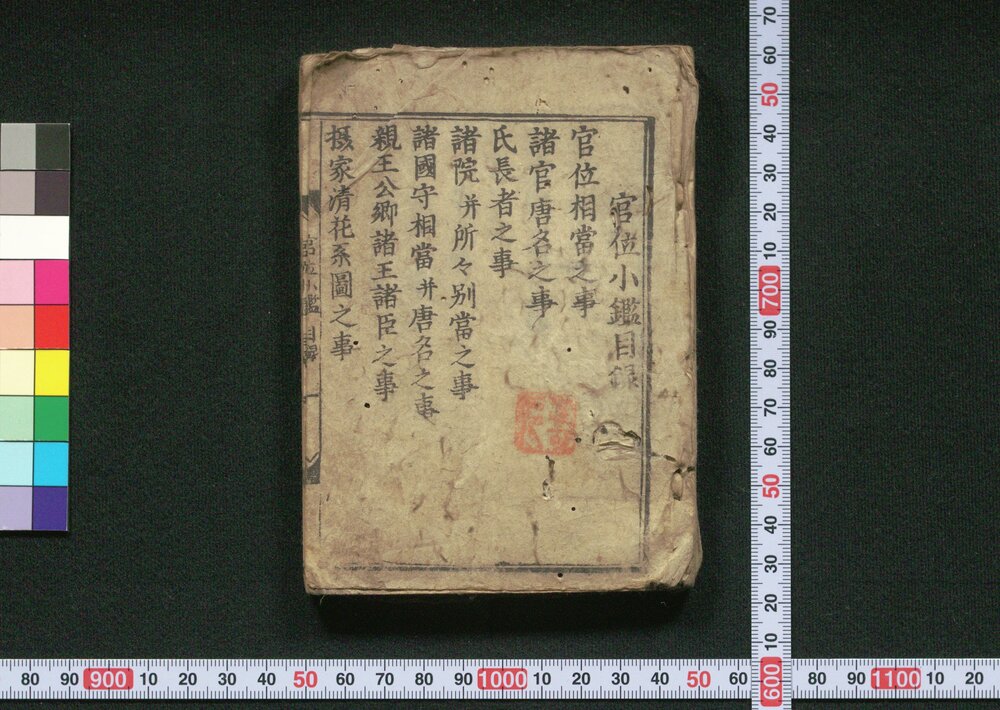 官位小鑑目録
官位相當之事
諸官唐名之事
氏長者之事
諸院并所々别當之事
諸國守相當并唐名之事
親王公卿諸王諸臣之事
摂家清花系圖之事
官位小鑑 目録 一
70
60
50
40
30
20
10
700
90
80
70
60
50
40
30
20
10
600
80 90 900 10 20 30 40 50 60 70 80 90 1000 10 20 30 40 50 60 80 90 1100 10 20